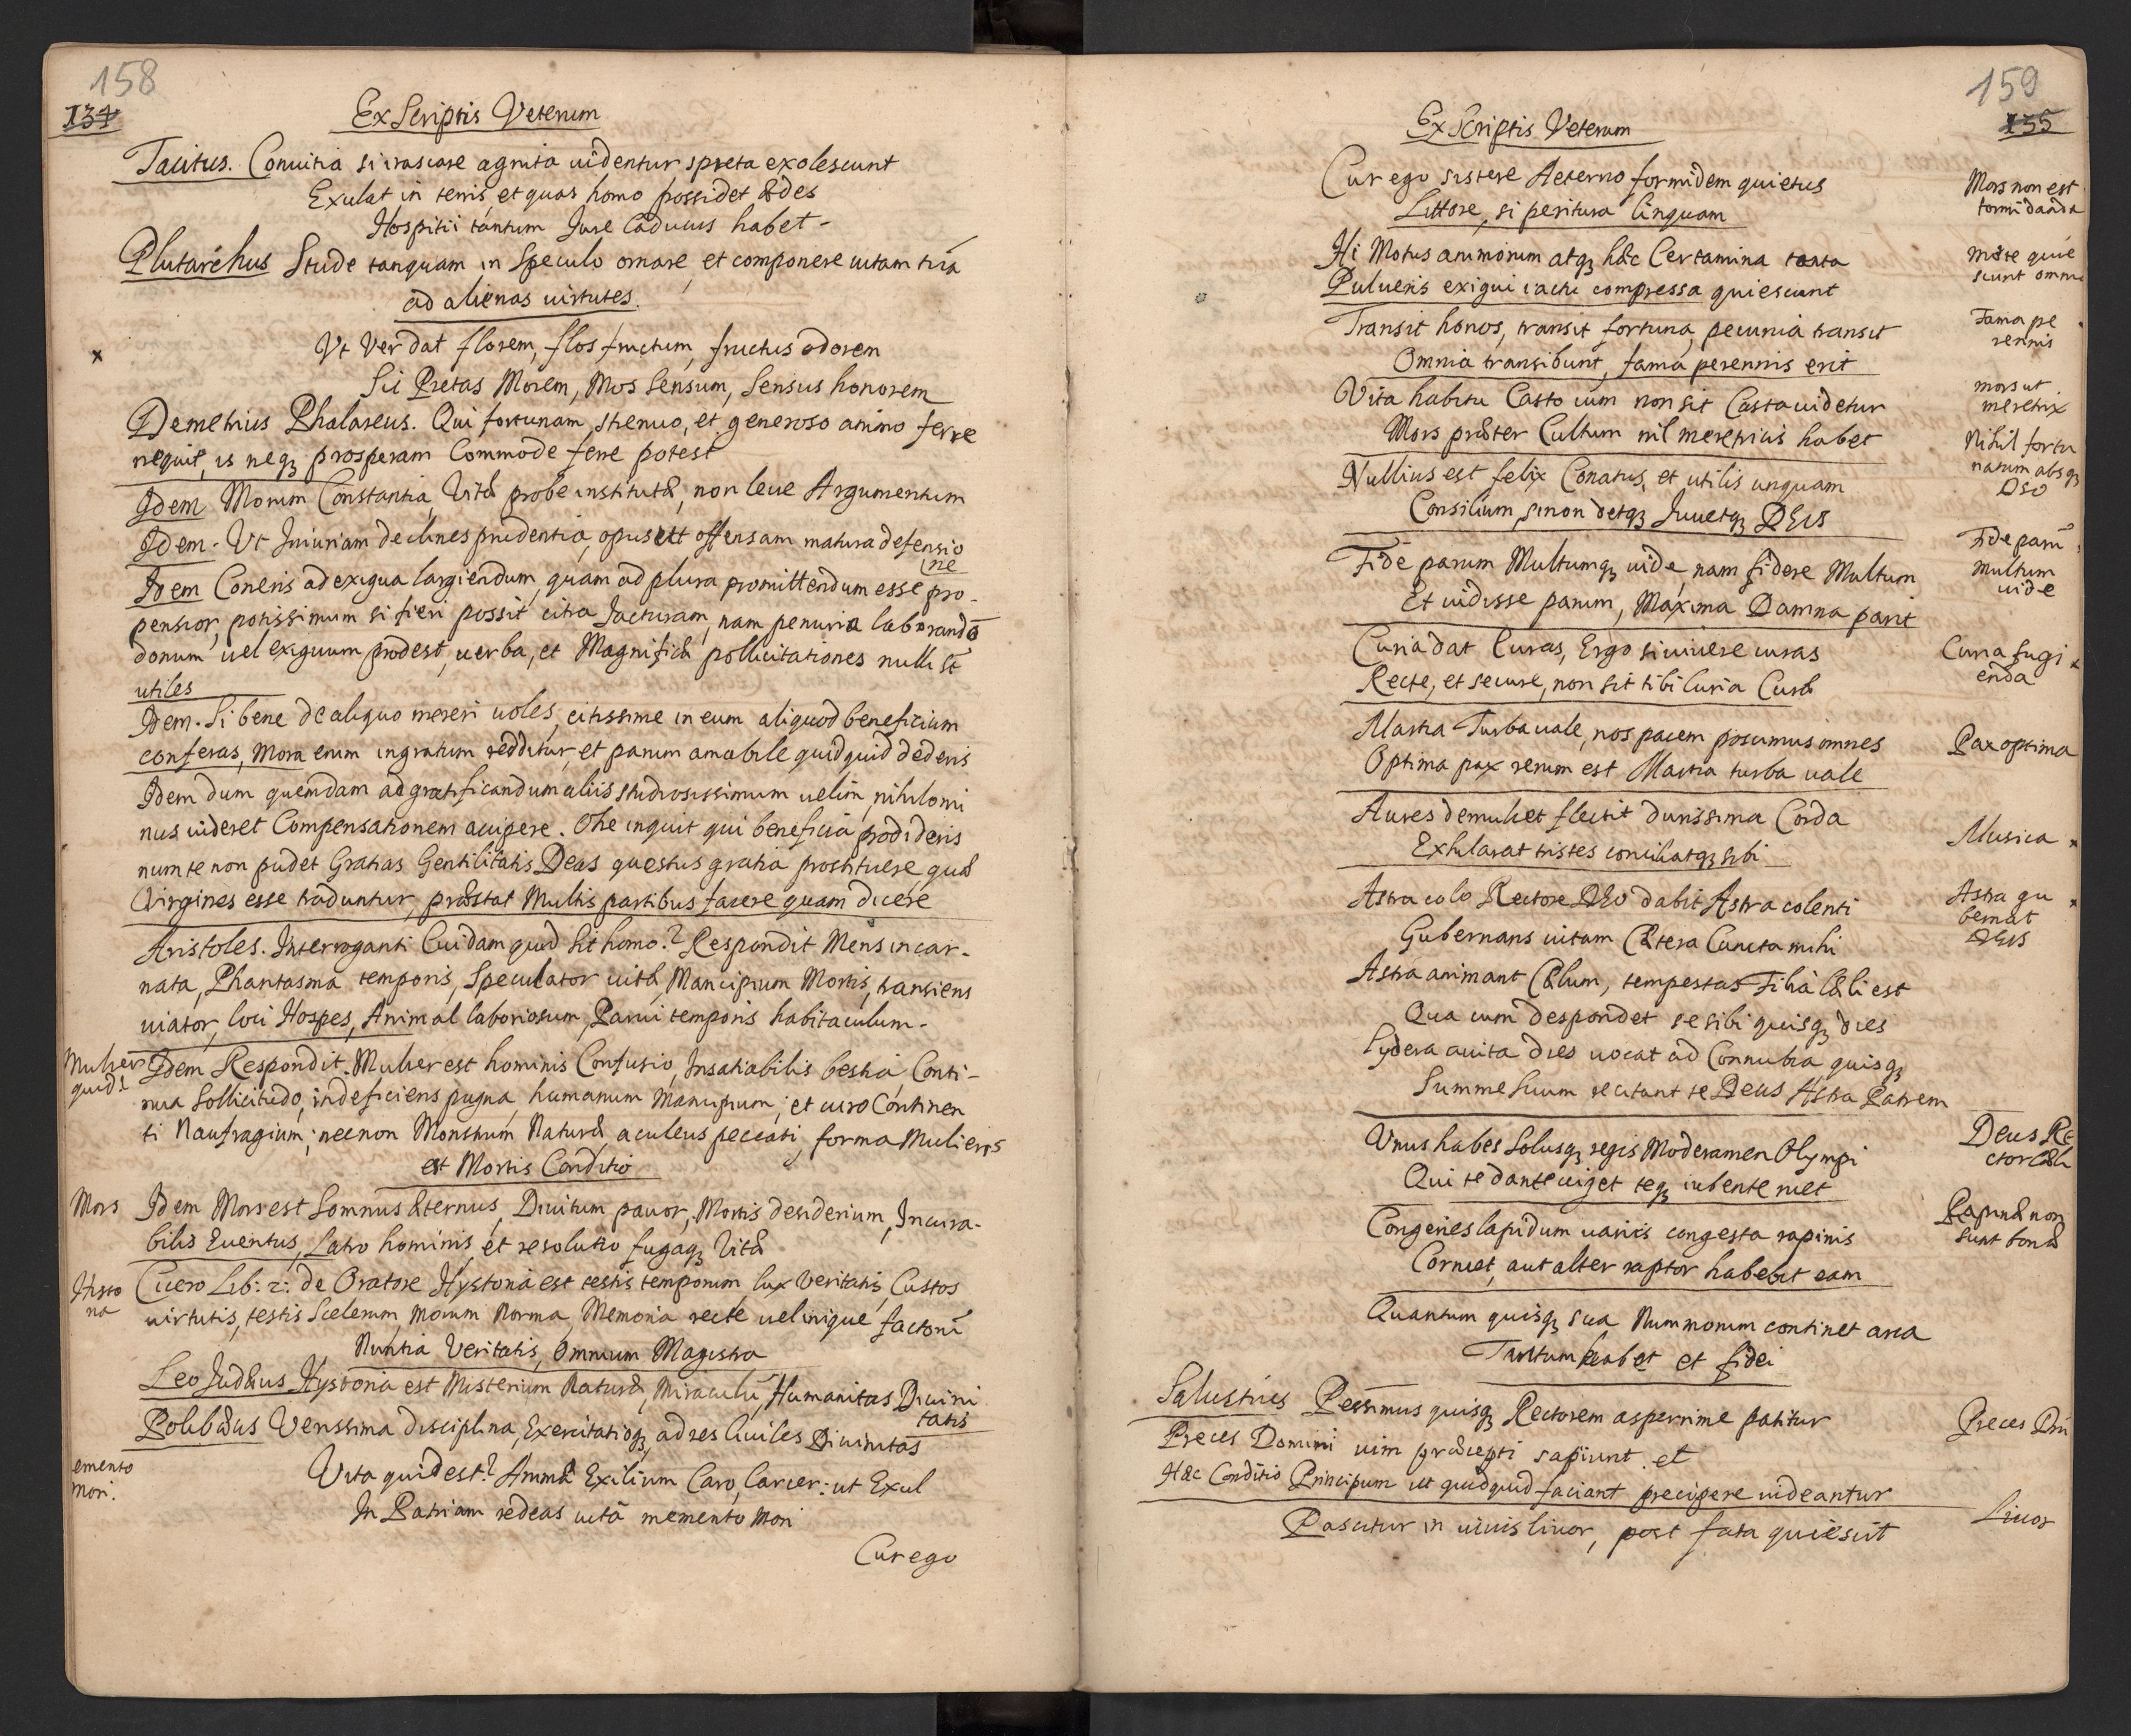 158
134
Ex Scriptis Veterum
Tacitus. Conuitia si irascare agnita uidentur spreta exolescunt
Exulat in terris, et quas homo possidet ædes
Hospitii tantum Jure Caducus habet -
Plutarchus Stude tanquam in Speculo ornare, et componere uitam tuā
ad alienas uirtutes.
x
Vt Ver dat florem, flos fructum, fructus odorem
Sic Pietas Morem, Mos Sensum, Sensus honorem
Demetrius Phalareus. Qui fortunam strenuo, et generoso animo ferre
nequit, is neqꝫ prosperam Commode ferre potest
Idem Morum Constantia, Vitæ probe institutæ, non leue Argumentum
Idem - Vt Iniuriam declines prudentia, opus est offensam matura defensio
ne
Idem Coneris ad exigua largiendum, quam ad plura promittendum esse pro-
pensior, potissimum si fieri possit citra Jacturam, nam penuria laborandō
donum uel exiguum prodest, uerba, et Magnificæ pollicitationes nulli sт̄
utiles
Idem. Si bene de aliquo mereri uoles, citissime in eum aliquod beneficium
conferas, Mora enim ingratum redditur, et parum amabile quidquid dederis
Idem dum quendam ad gratificandum aliis studiosissimum uelim, nihilomi
nus uideret Compensationem accipere. Ohe inquit qui beneficia prodideris
num te non pudet Gratias Gentilitatis Deas questus gratia prostituere, quæ
Virgines esse traduntur, præstat Multis partibus facere quam dicere
Aristoles. Interroganti Cuidam quid sit homo.? Respondit Mens incar-
nata, Phantasma temporis, Speculator uitæ, Mancipium Mortis, transiens
uiator, loci Hospes, Animal laboriosum, Parui temporis habitaculum.
Mulier
quid?
Idem Respondit. Mulier est hominis Confusio, Insatiabilis bestia, Conti-
nua Sollicitudo, indeficiens pugna, humanum Mancipium, et uiro Continen
ti Naufragium, necnon Monstrum Naturæ, aculeus peccati, forma Mulieris
est Mortis Conditio
Mors
Idem Mors est Somnus æternus, Diuitum pauor, Mortis desiderium, Incura-
bilis Euentus, Latro hominis, et resolutio fugaqꝫ Vitæ
Histo
ria
Cicero Lib: 2: de Oratore Hystoria est testis temporum, lux Veritatis, Custos
uirtutis, testis Scelerum, morum Norma, Memoria recte uel inique factorū
Nuntia Veritatis, Omnium Magistra
Leo Judæus Hystoria est Misterium Naturæ, Miraculū, Humanitas Diuini
tatis
Polibæus Verissima disciplina, Exercitatioqꝫ ad res Ciuiles Diuinitas
emento
mori.
Vita quid est? Animæ Exilium Caro, Carcer: ut Exul
In Patriam redeas uita memento mori
Cur ego
159
155
Ex Scriptis Veterum
Cur ego sistere Aeterno formidem quietus
Littore, si peritura linquam
Mors non est
formidanda
Hi Motus animorum atqꝫ hæc Certamina tanta
Pulueris exigui iactu compressa quiescunt
morte quie
scunt omnia
Transit honos, transit fortuna, pecunia transit
Omnia transibunt, fama perennis erit
Fama pe
rennis
Vita habitu Casto cum non sit Casta uidetur
Mors præter Cultum nil meretricis habet
mors ut
meretrix
Nullius est felix Conatus, et utilis unquam
Consilium, si non detqꝫ Juuetqꝫ DEus
Nihil fortu
natum absqꝫ
DEO
Fide parum Multumqꝫ uide, nam fidere Multum
Et uidisse parum, Maxima Damna parit
Fide parū
multum
uide
Curia dat Curas, Ergo si uiuere curas
Recte, et secure, non sit tibi Curia Curæ
Curia fugi x
enda
Martia Turba uale, nos pacem poscimus omnes
Optima pax rerum est Martia turba uale
Pax optima
Aures demulcet flectit durissima Corda
Exhilarat tristes conciliatqꝫ sibi
Musica x
Astra colo Rectore DEO dabit Astra colenti
Gubernans uitam Cætera Cuncta mihi
Astra gu x
bernat
DEUS
Astra animant Cælum, tempestas Filia Cæli est
Qua cum despondet se sibi quisqꝫ dies
Sydera auita dies uocat ad Connubia quisqꝫ
Summe Suum recitant te Deus Astra Patrem
Vnus habes Solusqꝫ regis Moderamen Olympi
Qui te dante uiget teqꝫ iubente ruet
Deus Re
ctor Cæli
Congeries lapidum uariis congesta rapinis
Corruet, aut alter raptor habebit eam
Rapinæ non
sunt bonæ
Quantum quisqꝫ sua Nummorum continet arca
Tantum habet et fidei
Salustius Pessimus quisqꝫ Rectorem asperrime patitur
Preces Domini uim præcepti sapiunt. et
Preces Dnī
Hæc Conditio Principum ut quidquid faciant precipere uideantur
Pascitur in uiuis liuor, post fata quiescit
Liuor